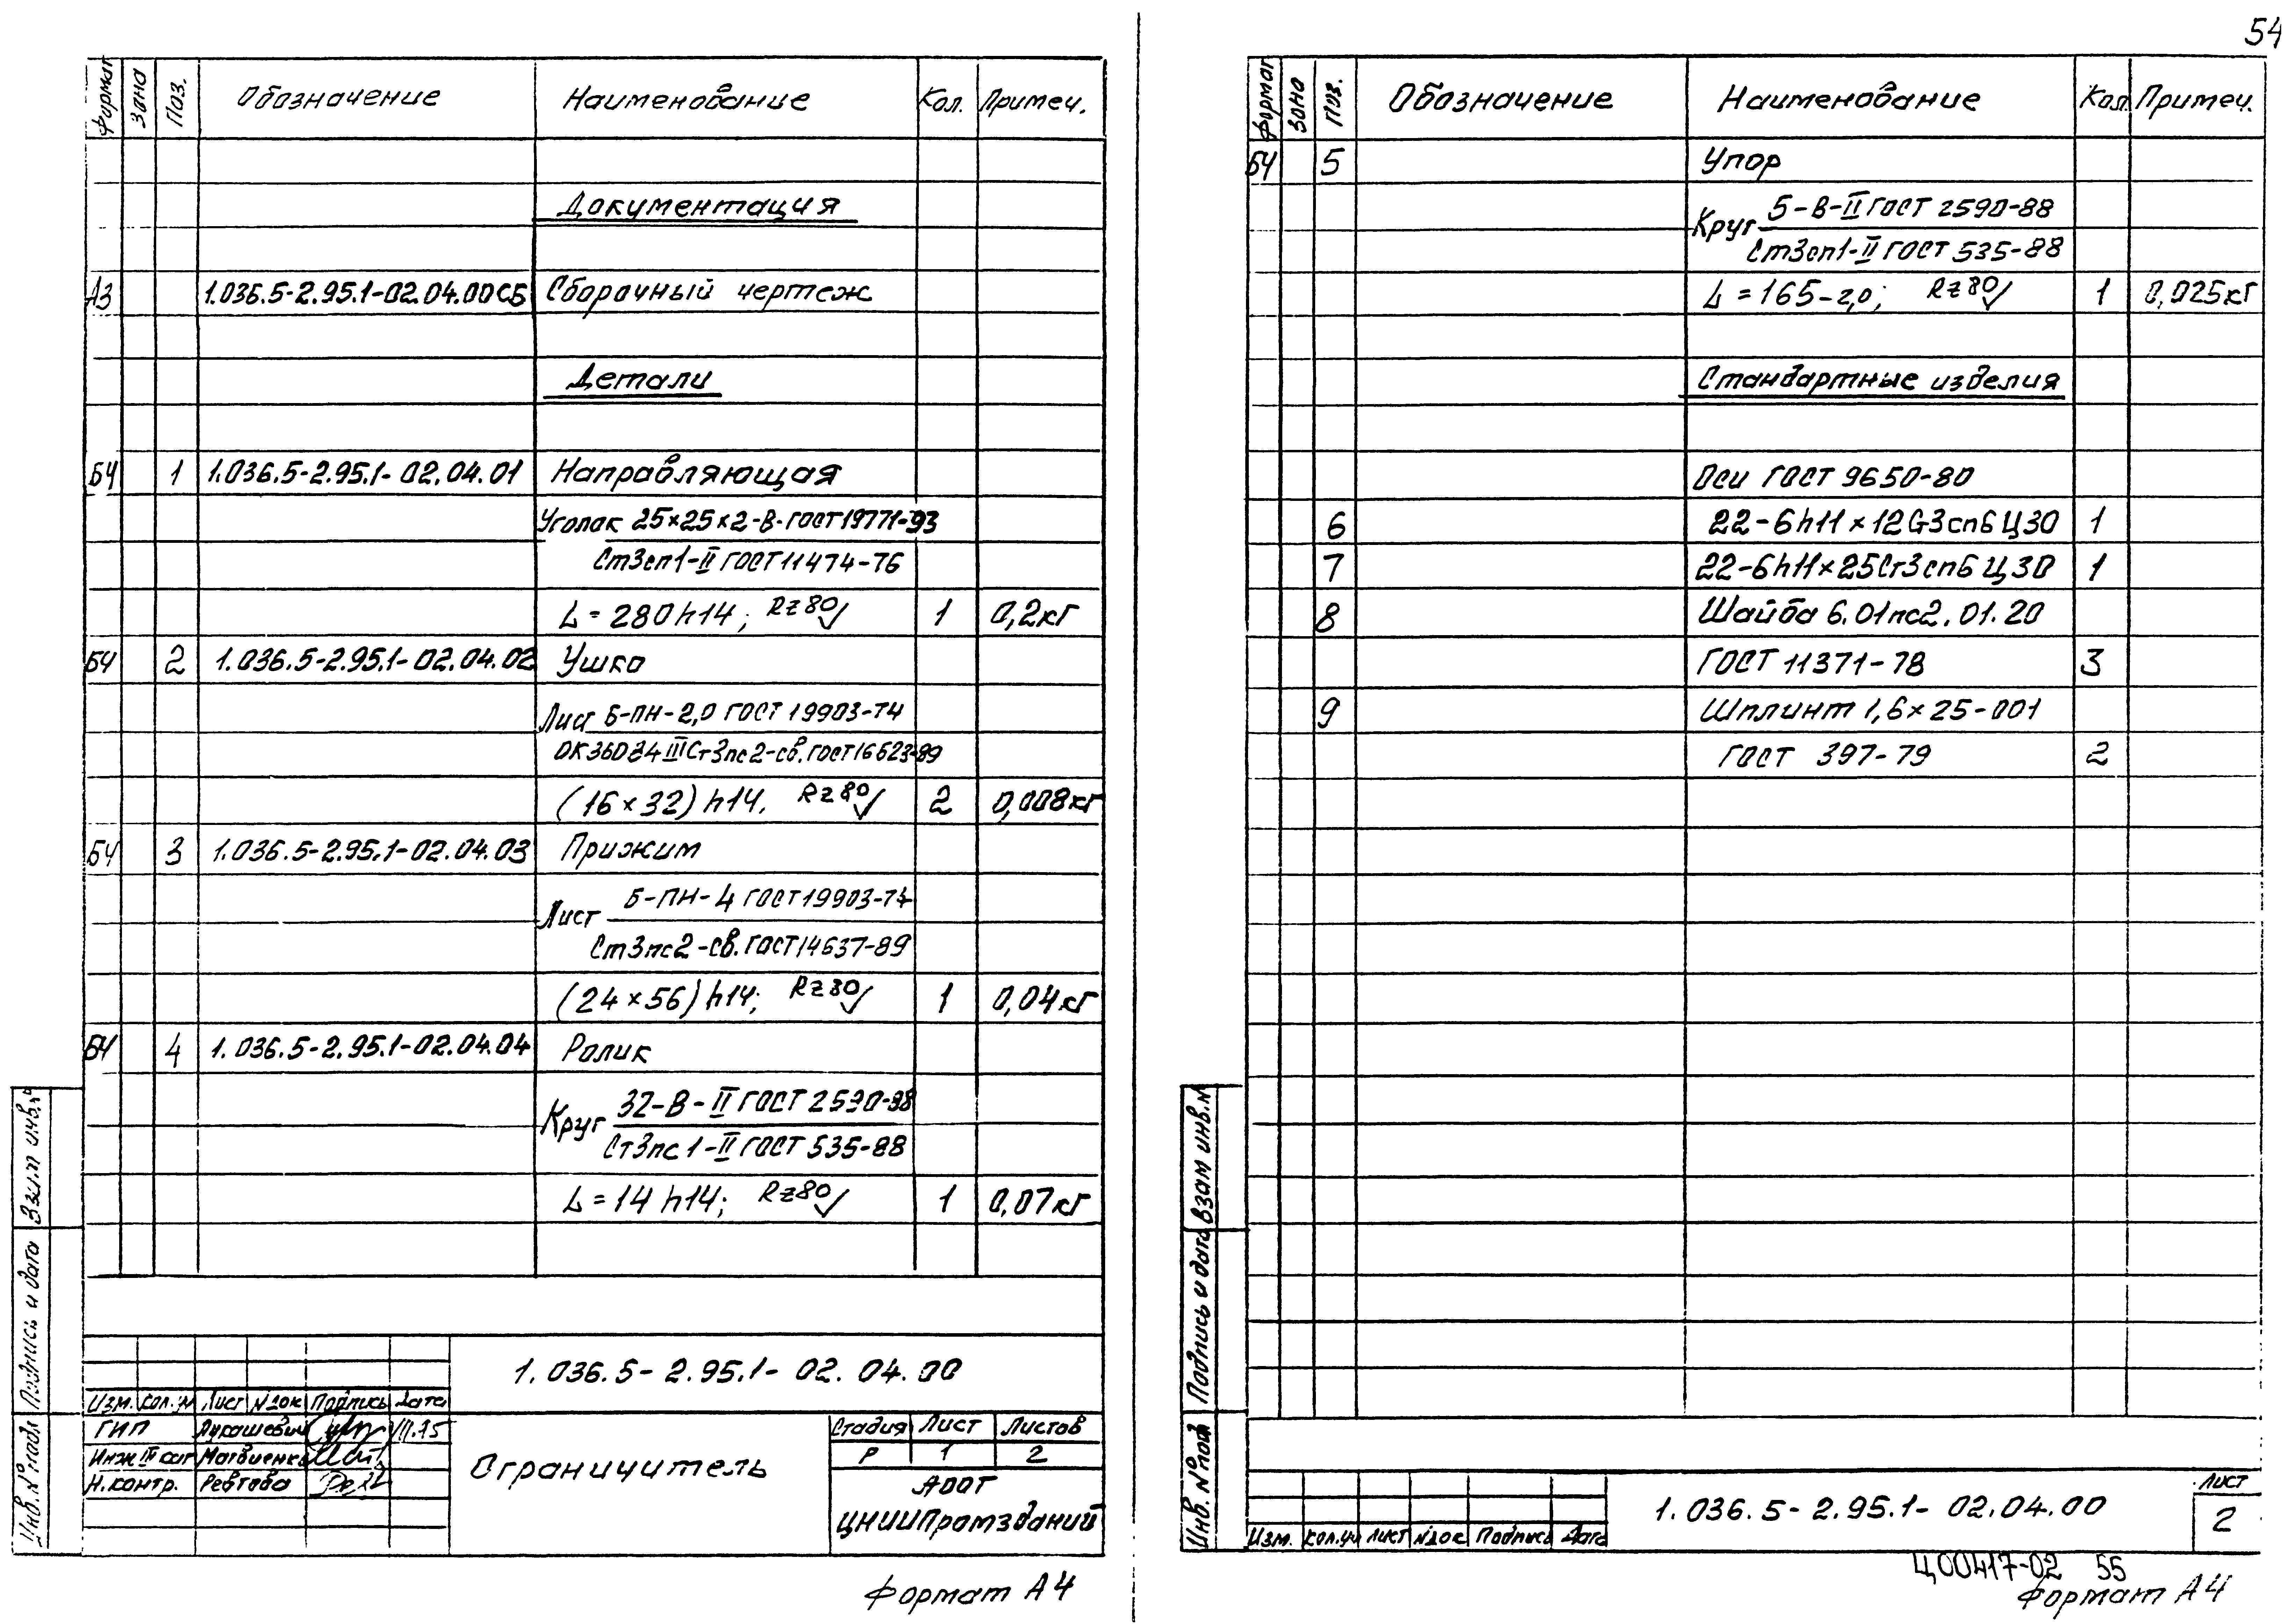 54
Формат Зона Поз. Обозначение Наименование Кол. Примеч.
Документация
А3 1.036.5-2.95.1-02.04.00СБ Сборочный чертеж
Детали
БЧ 1 1.036.5-2.95.1-02.04.01 Направляющая
Уголок 25×25×2-В-ГОСТ 19771-93
Ст3сп1-II ГОСТ 11474-76
L = 280h14; Rz80 1 0,2кг
БЧ 2 1.036.5-2.95.1-02.04.02 Ушко
Лист Б-ПН-2,0 ГОСТ 19903-74
ОК360В4 III Ст3пс2-св. ГОСТ 16523-89
(16×32)h14. Rz80 2 0,008кг
БЧ 3 1.036.5-2.95.1-02.04.03 Прижим
Б-ПН-4 ГОСТ 19903-74
Лист
Ст3пс2-св. ГОСТ 14637-89
(24×56)h14; Rz80 1 0,04кг
БЧ 4 1.036.5-2.95.1-02.04.04 Ролик
32-В-II ГОСТ 2590-88
Круг
Ст3пс1-II ГОСТ 535-88
L = 14h14; Rz80 1 0,07кг
Взам инв.№
Подпись и дата
Инв. № подл
1.036.5-2.95.1-02.04.00
Изм. Кол.уч Лист №док Подпись Дата
ГИП Лукашевич
Инж III кат Матвиенко
Н.контр. Ревтова
Ограничитель
Стадия Лист Листов
Р 1 2
АООТ
ЦНИИПромзданий
Формат А4
Формат Зона Поз. Обозначение Наименование Кол. Примеч.
БЧ 5 Упор
5-В-II ГОСТ 2590-88
Круг
Ст3сп1-II ГОСТ 535-88
L = 165-2,0; Rz80 1 0,025кг
Стандартные изделия
Оси ГОСТ 9650-80
6 22-6h11×12Ст3сп6Ц30 1
7 22-6h11×25Ст3сп6Ц30 1
8 Шайба 6.01пс2.01.20
ГОСТ 11371-78 3
9 Шплинт 1,6×25-001
ГОСТ 397-79 2
Взам инв.№
Подпись и дата
Инв. №подл
Изм. Кол.уч Лист №док Подпись Дата
1.036.5-2.95.1-02.04.00
Лист
2
Ц00417-02 55
Формат А4